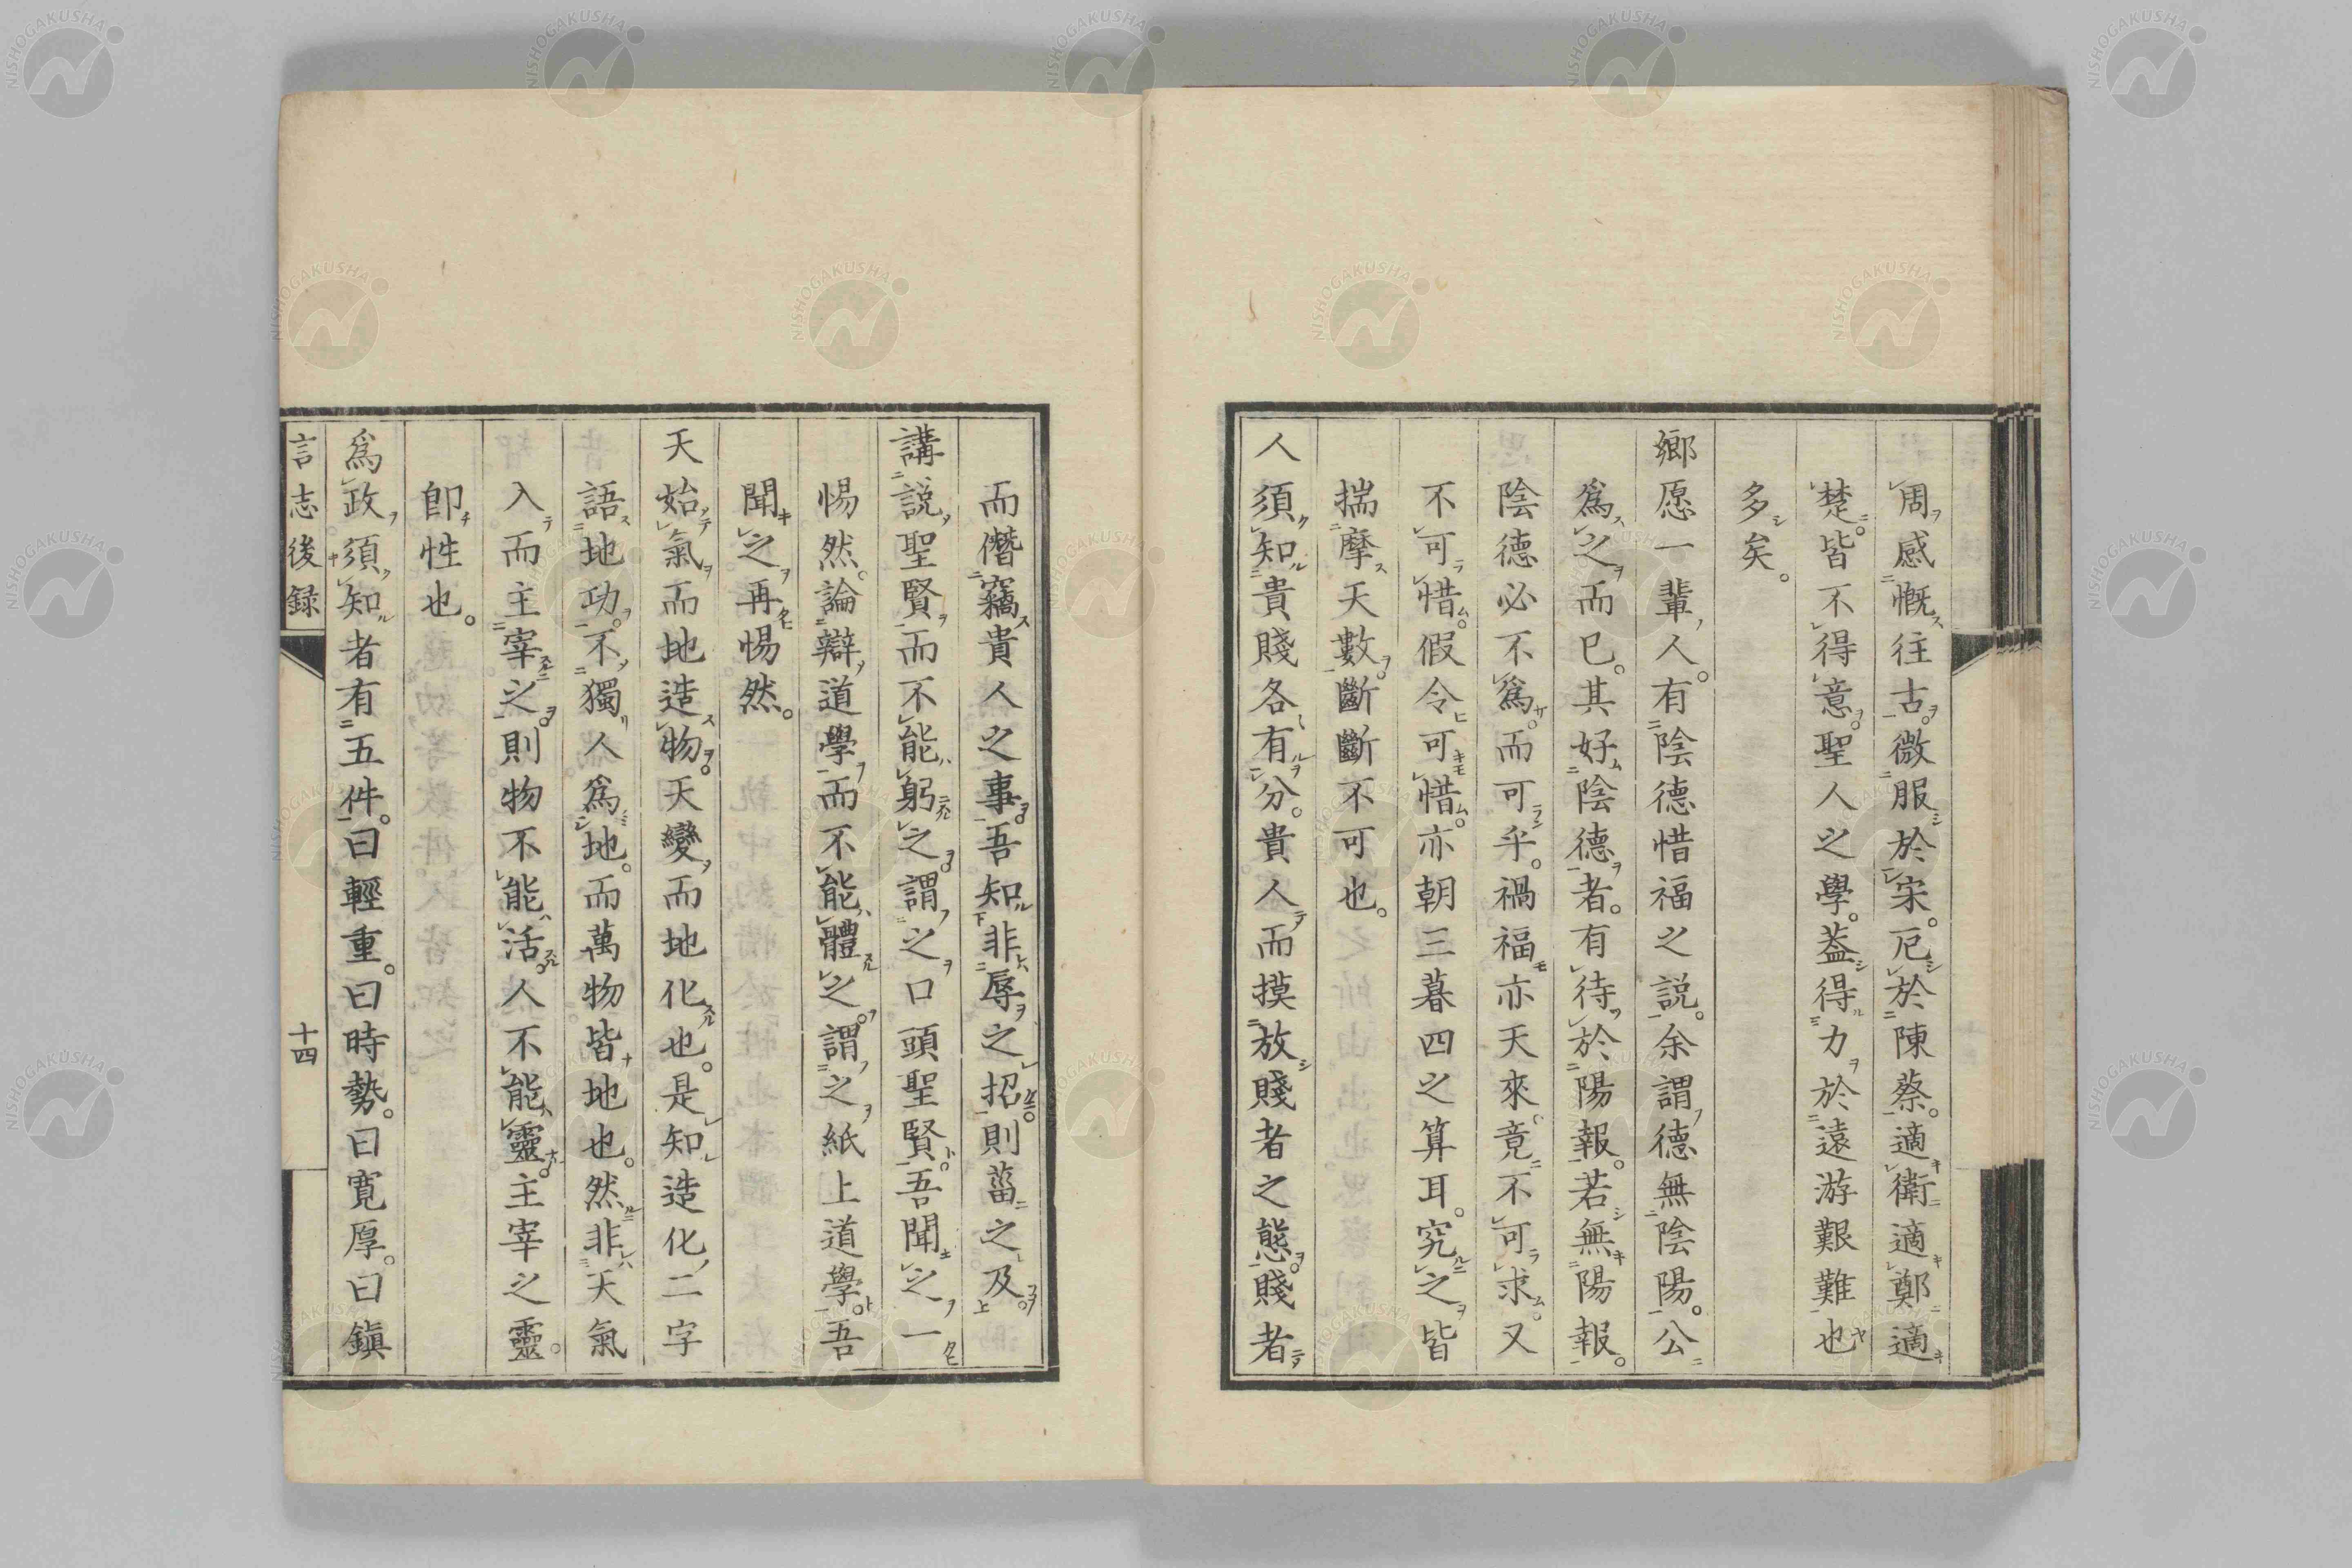 周感慨往古。微服於宋。厄於陳蔡。適衛適鄭適
楚。皆不得意。聖人之學。葢得力於遠游艱難也
多矣。
鄉愿一輩人。有陰德惜福之說。余謂德無陰陽。公
爲之而已。其好陰德者。有待於陽報。若無陽報。
陰德必不爲。而可乎。禍福亦天來。竟不可求。又
不可惜。假令可惜。亦朝三暮四之算耳。究之皆
揣摩天數。斷斷不可也。
人須知貴賤各有分。貴人而摸放賤者之態。賤者
而僭竊貴人之事。吾知非辱之招。則菑之及。
講說聖賢而不能躬之。謂之口頭聖賢。吾聞之一
惕然。論辯道學而不能體之。謂之紙上道學。吾
聞之再惕然。
天始氣而地造物。天變而地化也。是知造化二字
語地功。不獨人爲地。而萬物皆地也。然非天氣
入而主宰之。則物不能活。人不能靈。主宰之靈。
卽性也。
爲政須知者有五件。曰輕重。曰時勢。曰寬厚。曰鎭
言志後録
十四
NISHOGAKUSHA